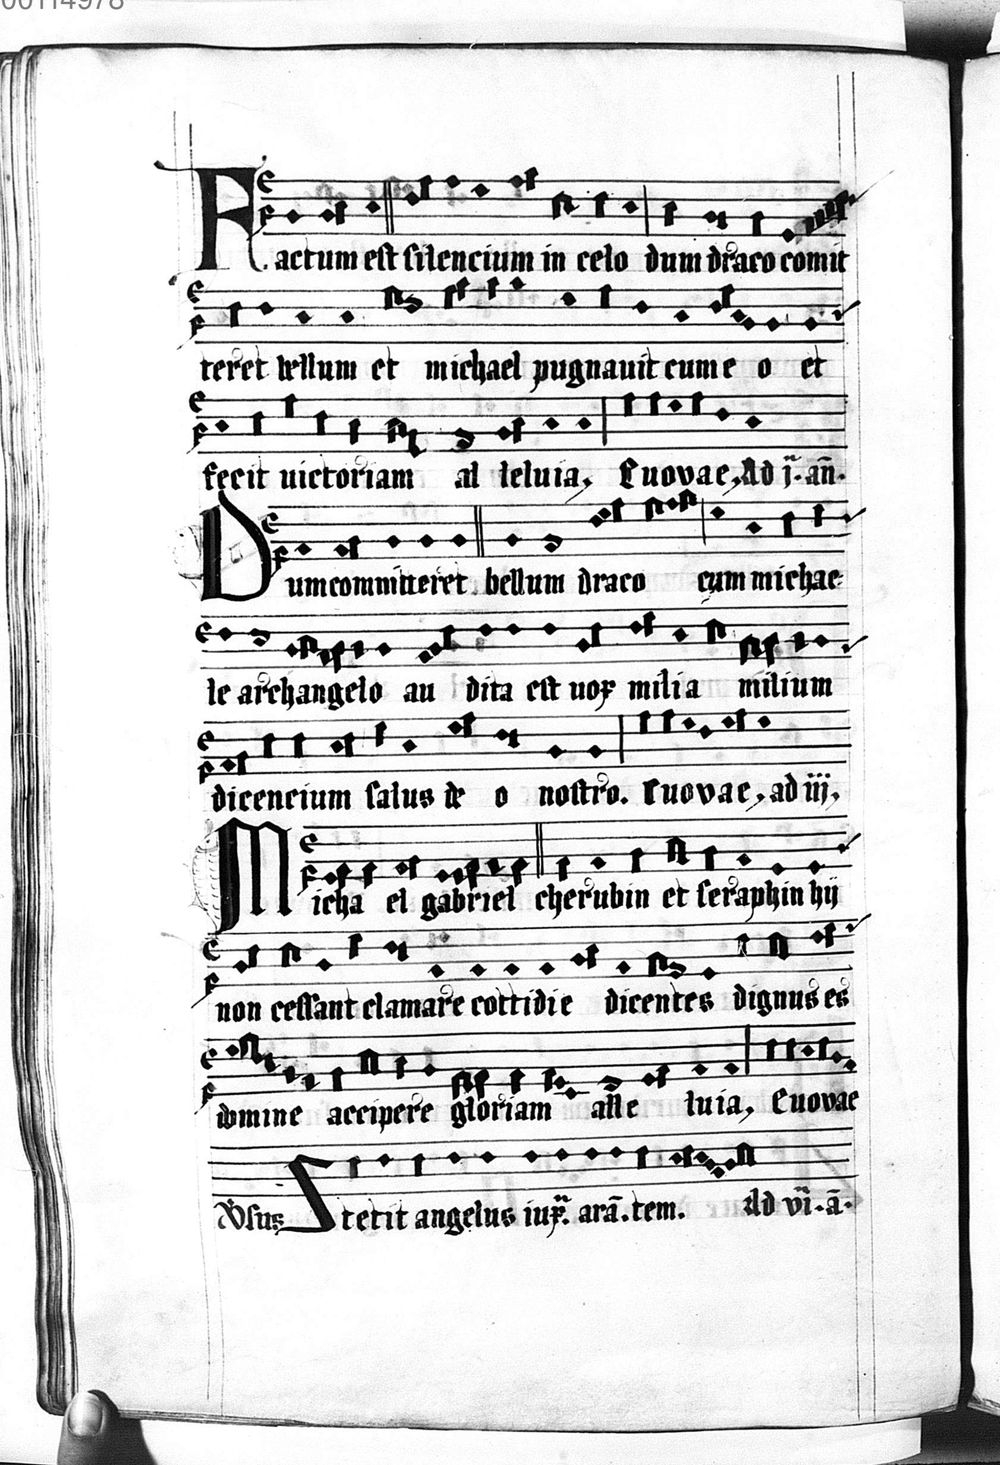 00114978
Factum est silencium in celo dum draco comit
teret bellum et michael pugnauit cum e o et
fecit uictoriam al leluia, Euovae, Ad j. añ.
Dum committeret bellum draco cum michae-
le archangelo au dita est uox milia milium
dicencium salus de o nostro. Euovae, ad iij,
Micha el gabriel cherubin et seraphin hij
non cessant clamare cottidie dicentes dignus es
domine accipere gloriam alle luia, Euovae
Vsus Stetit angelus iux. arā. tem. Ad vi. ā.